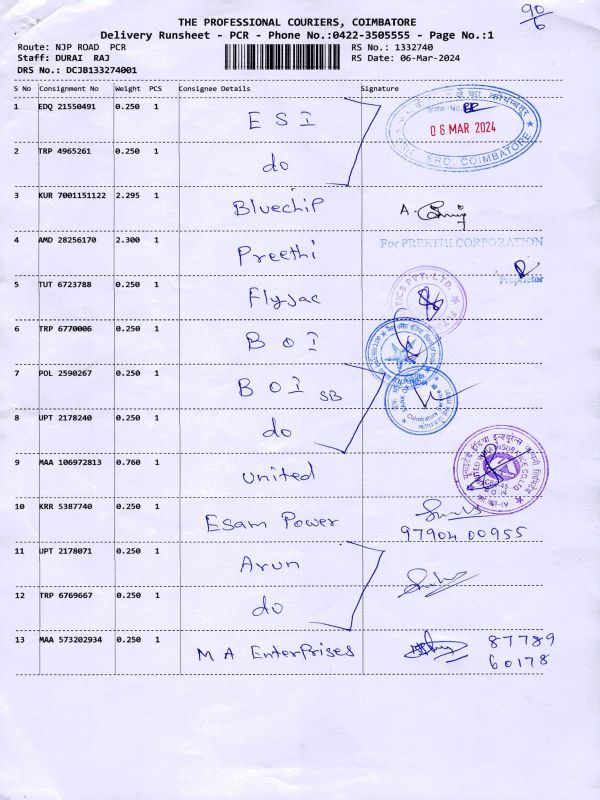 90/6
THE PROFESSIONAL COURIERS, COIMBATORE
Delivery Runsheet - PCR - Phone No.:0422-3505555 - Page No.:1
Route: NJP ROAD PCR RS No.: 1332740
Staff: DURAI RAJ RS Date: 06-Mar-2024
DRS No.: DCJB133274001
S No Consignment No Weight PCS Consignee Details Signature
1 EDQ 21550491 0.250 1 ESI
06 MAR 2024
SRO, COIMBATORE
2 TRP 4965261 0.250 1 do
3 KUR 7001151122 2.295 1 Bluechip
4 AMD 28256170 2.300 1 Preethi For PREETHI CORPORATION
Proprietor
5 TUT 6723788 0.250 1 Flyjac
6 TRP 6770006 0.250 1 BOI
7 POL 2590267 0.250 1 BOI SB
8 UPT 2178240 0.250 1 do
9 MAA 106972813 0.760 1 United
10 KRR 5387740 0.250 1 Esam Power 97904 00955
11 UPT 2178071 0.250 1 Arun
12 TRP 6769667 0.250 1 do
13 MAA 573202934 0.250 1 M A Enterprises 87789
60178